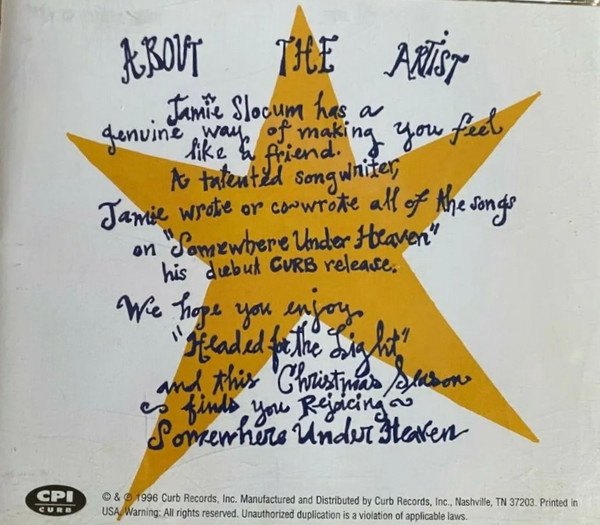 ABOUT THE ARTIST
Jamie Slocum has a
genuine way of making you feel
like a friend.
A talented songwriter,
Jamie wrote or co-wrote all of the songs
on "Somewhere Under Heaven"
his debut CURB release.
We hope you enjoy
"Headed for the Light"
and this Christmas Season
finds you Rejoicing
Somewhere Under Heaven
CPI
CURB
© & ℗ 1996 Curb Records, Inc. Manufactured and Distributed by Curb Records, Inc., Nashville, TN 37203. Printed in
USA. Warning: All rights reserved. Unauthorized duplication is a violation of applicable laws.